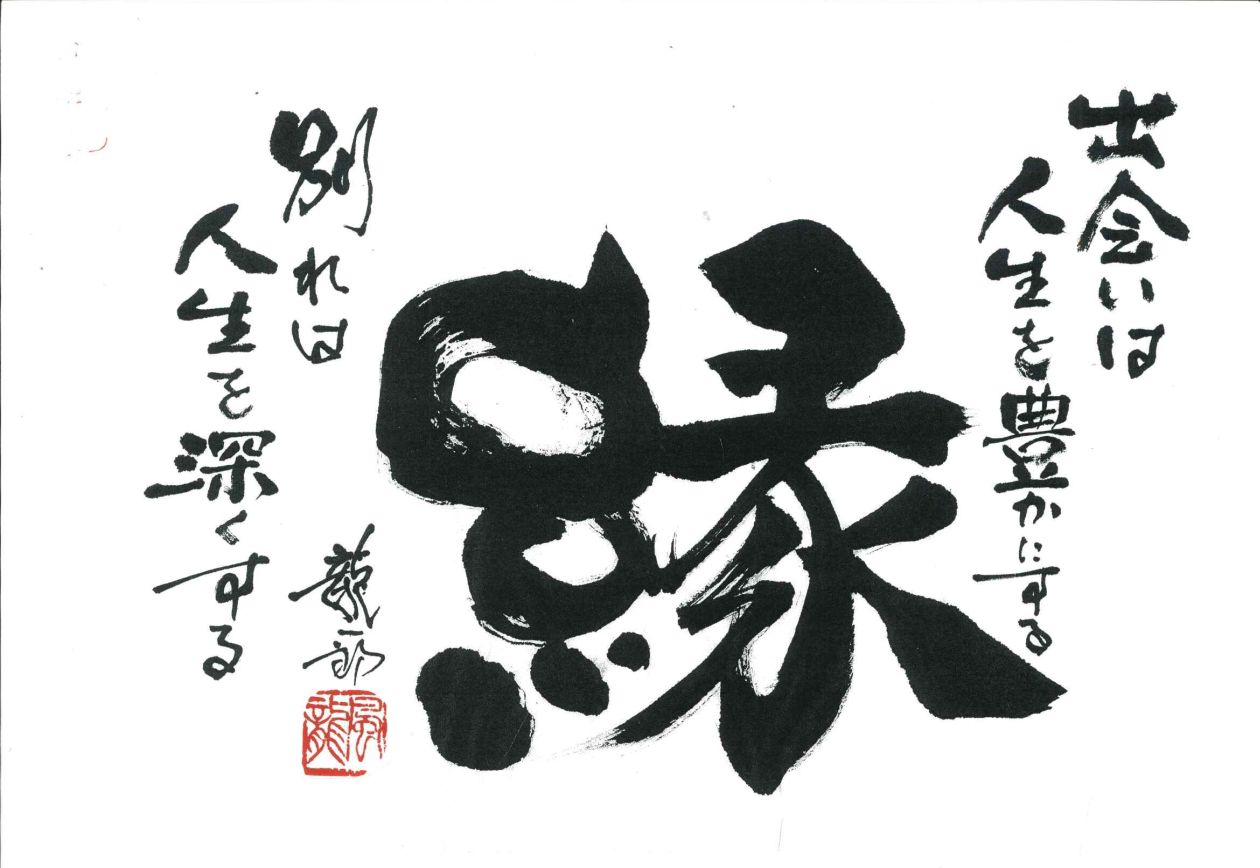 出会いは
人生を豊かにする
縁
別れは
人生を深くする
龍一郎
風龍